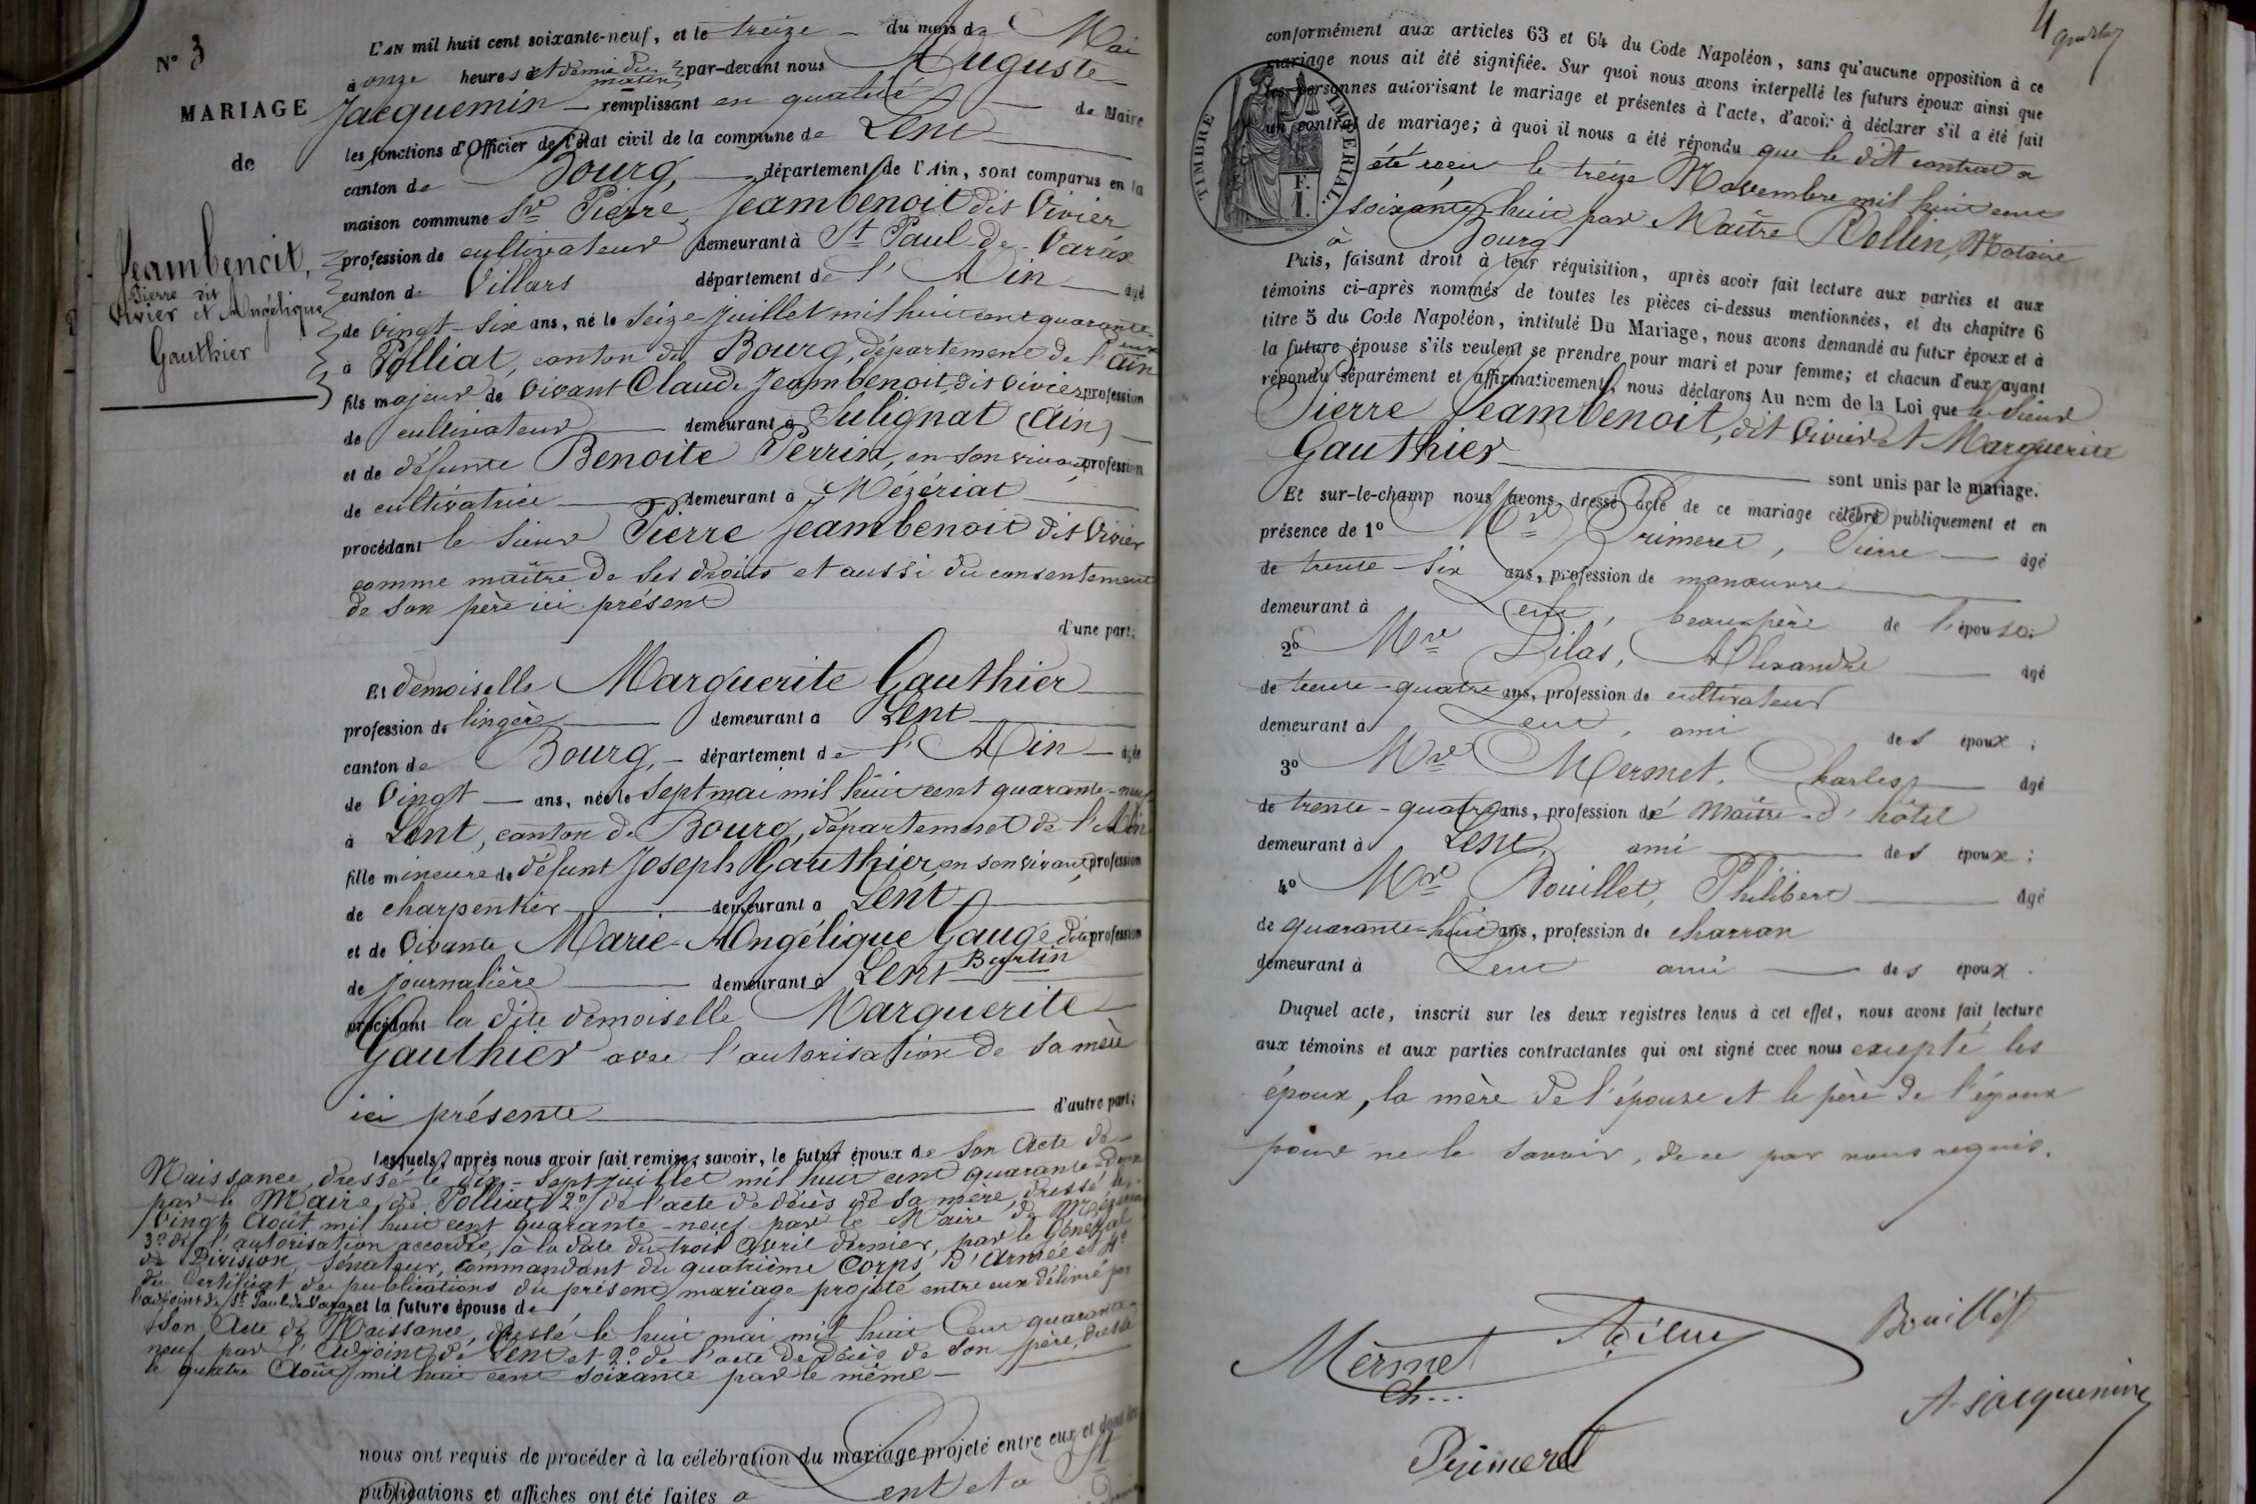 N° 3
MARIAGE
de
Jeambenoit,
Pierre dit
Vivier et Angélique
Gauthier
L'AN mil huit cent soixante-neuf, et le treize du mois de Mai
à onze heures et demie du matin, par-devant nous Auguste
Jacquemin remplissant en qualité de Maire
les fonctions d'Officier de l'état civil de la commune de Lent
canton de Bourg, département de l'Ain, sont comparus en la
maison commune Sr Pierre Jeambenoit dit Vivier
profession de cultivateur demeurant à St Paul-de-Varax
canton de Villars département de l'Ain âgé
de Vingt-six ans, né le seize juillet mil huit cent quarante-deux
à Polliat, canton de Bourg, département de l'ain
fils majeur de Vivant Claude Jeambenoit dit Vivier profession
de cultivateur demeurant à Sulignat (Ain)
et de défunte Benoite Perrin, en son vivant profession
de cultivatrice demeurant à Mézériat
procédant le sieur Pierre Jeambenoit dit Vivier
comme maître de ses droits et aussi du consentement
de son père ici présent
d'une part;
Et demoiselle Marguerite Gauthier
profession de lingère demeurant à Lent
canton de Bourg, département de l'Ain âgée
de Vingt ans, née le sept mai mil huit cent quarante-neuf
à Lent, canton de Bourg, département de l'Ain
fille mineure de défunt Joseph Gauthier, en son vivant, profession
de charpentier demeurant à Lent
et de Vivante Marie-Angélique Gaugé dite profession
Burtin
de journalière demeurant à Lent
procédant la dite demoiselle Marguerite
Gauthier avec l'autorisation de sa mère
ici présente d'autre part;
Lesquels, après nous avoir fait remise, savoir, le futur époux de son Acte de
Naissance, dressé le dix-sept juillet mil huit cent quarante-deux
par le Maire de Polliat, 2° de l'acte de décès de sa mère, dressé le
Vingt Août mil huit cent quarante-neuf par le Maire de Mézériat
3° de l'autorisation accordée, à la date du trois avril dernier, par le Général
de Division, Sénateur, commandant du quatrième Corps D'Armée et 4°
du Certificat de publications du présent mariage projeté entre eux délivré par
l'adjoint de St Paul de Varax et la future épouse de
son Acte de Naissance, dressé le huit mai mil huit cent quarante-
neuf par l'Adjoint de Lent et 2° de l'acte de décès de son père, dressé
le quatre Août mil huit cent soixante par le même
nous ont requis de procéder à la célébration du mariage projeté entre eux et dont les
publications et affiches ont été faites à Lent et à St
4
conformément aux articles 63 et 64 du Code Napoléon, sans qu'aucune opposition à ce
mariage nous ait été signifiée. Sur quoi nous avons interpellé les futurs époux ainsi que
les personnes autorisant le mariage et présentes à l'acte, d'avoir à déclarer s'il a été fait
un contrat de mariage; à quoi il nous a été répondu que le dit contrat a
été reçu le treize Novembre mil huit cent
soixante-huit par Maître Rollin, Notaire
à Bourg
TIMBRE IMPÉRIAL
F.
1.
Puis, faisant droit à leur réquisition, après avoir fait lecture aux parties et aux
témoins ci-après nommés de toutes les pièces ci-dessus mentionnées, et du chapitre 6
titre 5 du Code Napoléon, intitulé Du Mariage, nous avons demandé au futur époux et à
la future épouse s'ils veulent se prendre pour mari et pour femme; et chacun d'eux ayant
répondu séparément et affirmativement, nous déclarons Au nom de la Loi que le sieur
Pierre Jeambenoit, dit Vivier et Marguerite
Gauthier sont unis par le mariage.
Et sur-le-champ nous avons dressé acte de ce mariage célébré publiquement et en
présence de 1° Mre Primeret, Pierre âgé
de trente-six ans, profession de manœuvre
demeurant à Lent, beau-père de l'épouse;
2° Mre Dilas, Alexandre âgé
de trente-quatre ans, profession de cultivateur
demeurant à Lent, ami des époux;
3° Mre Mermet, Charles âgé
de trente-quatre ans, profession de Maître-d'hôtel
demeurant à Lent, ami des époux;
4° Mre Bouillet, Philibert âgé
de quarante-huit ans, profession de charron
demeurant à Lent ami des époux.
Duquel acte, inscrit sur les deux registres tenus à cet effet, nous avons fait lecture
aux témoins et aux parties contractantes qui ont signé avec nous excepté les
époux, la mère de l'épouse et le père de l'époux
pour ne le savoir, de ce par nous requis.
Bouillet
Mermet
Ch...
A. Jacquemin
Primeret